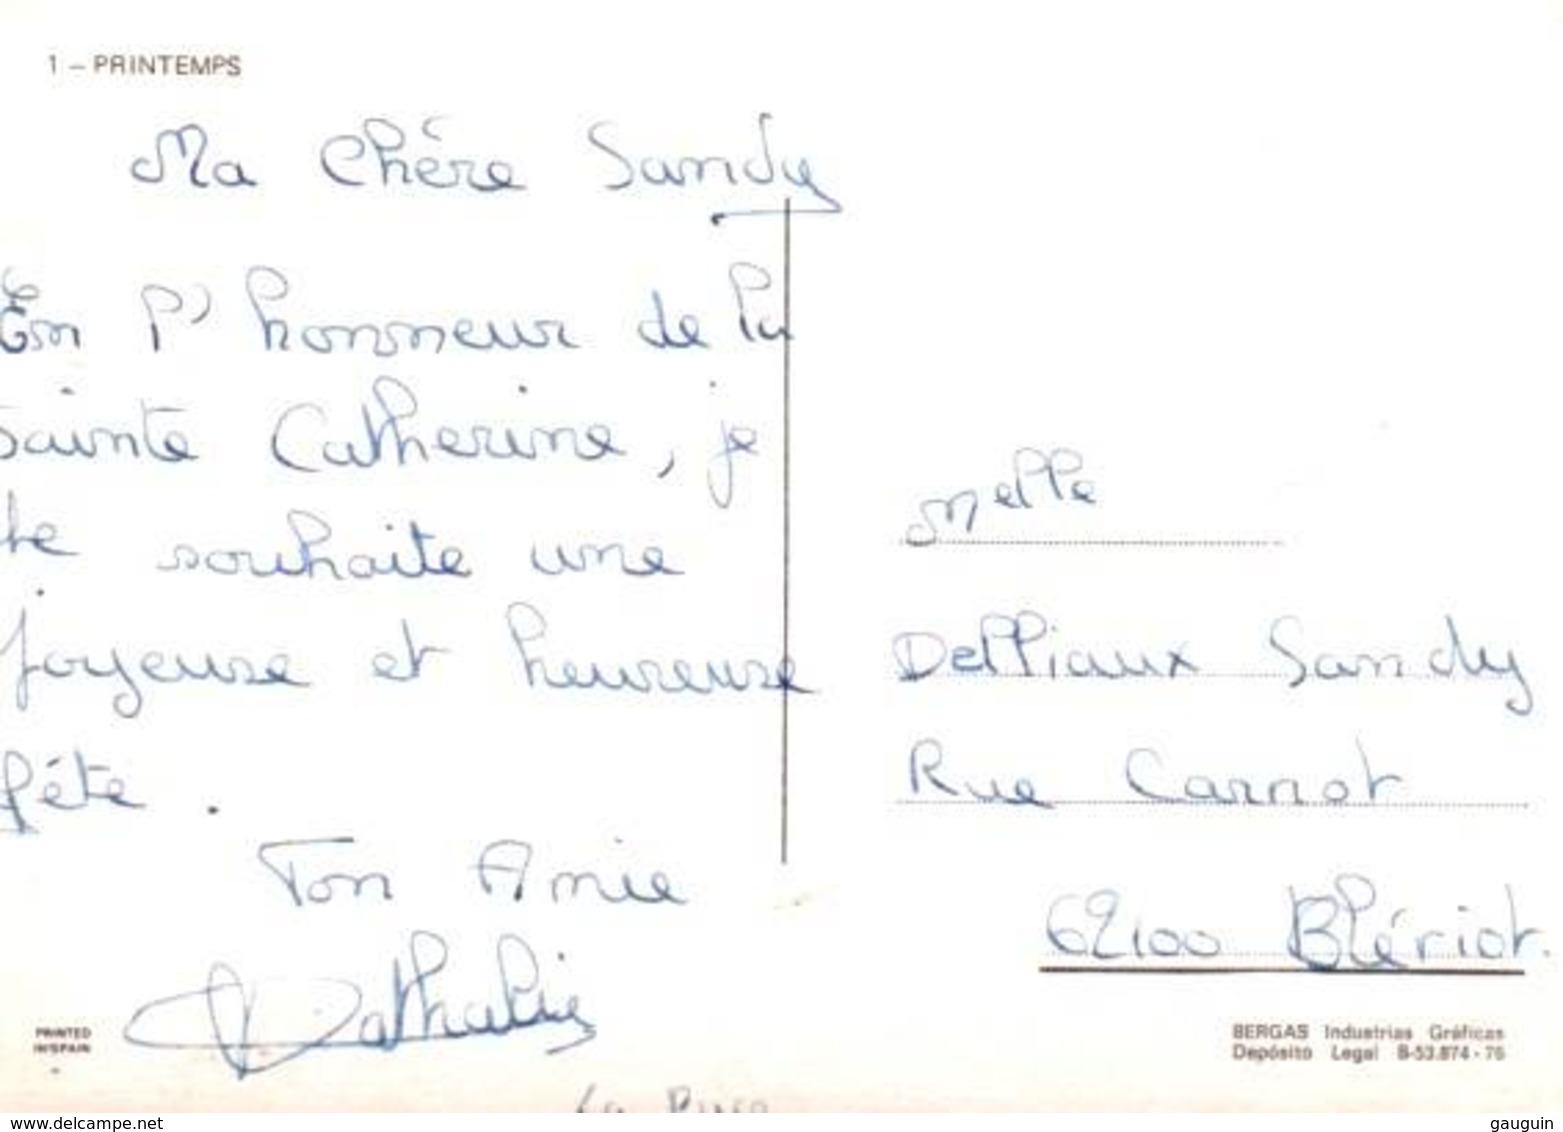 1 – PRINTEMPS
Ma Chère Sandy
En l'honneur de la
Sainte Catherine, je
te souhaite une
joyeuse et heureuse
fête.
Ton Amie
Nathalie
PRINTED
IN SPAIN
Melle
Delliaux Sandy
Rue Carnot
62100 Blériot.
BERGAS Industrias Gráficas
Depósito Legal B-53.874-76
www.delcampe.net
gauguin